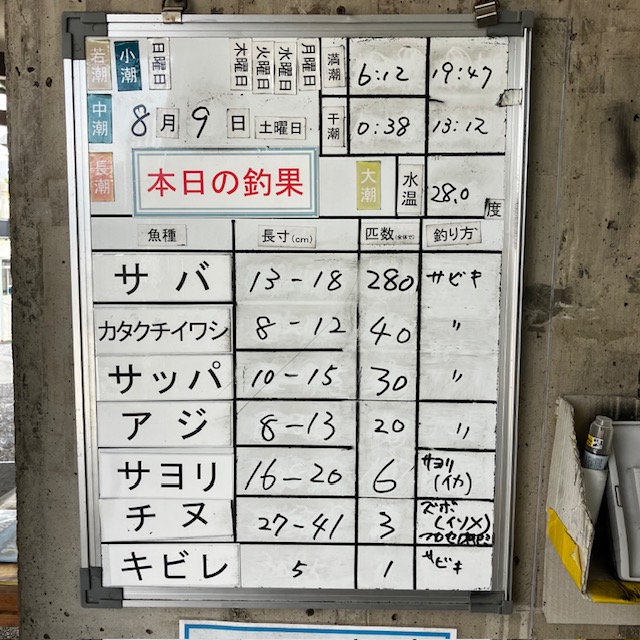 若潮 小潮 日曜日 木曜日 火曜日 水曜日 月曜日 満潮 6:12 19:47
中潮 8月9日 土曜日 干潮 0:38 13:12
長潮 本日の釣果 大潮 水温 28.0 度
魚種 長寸(cm) 匹数(全体で) 釣り方
サバ 13-18 280 サビキ
カタクチイワシ 8-12 40 〃
サッパ 10-15 30 〃
アジ 8-13 20 〃
サヨリ 16-20 6 サヨリ
(イカ)
チヌ 27-41 3 ズボ
(イソメ)
キビレ 5 1 サビキ